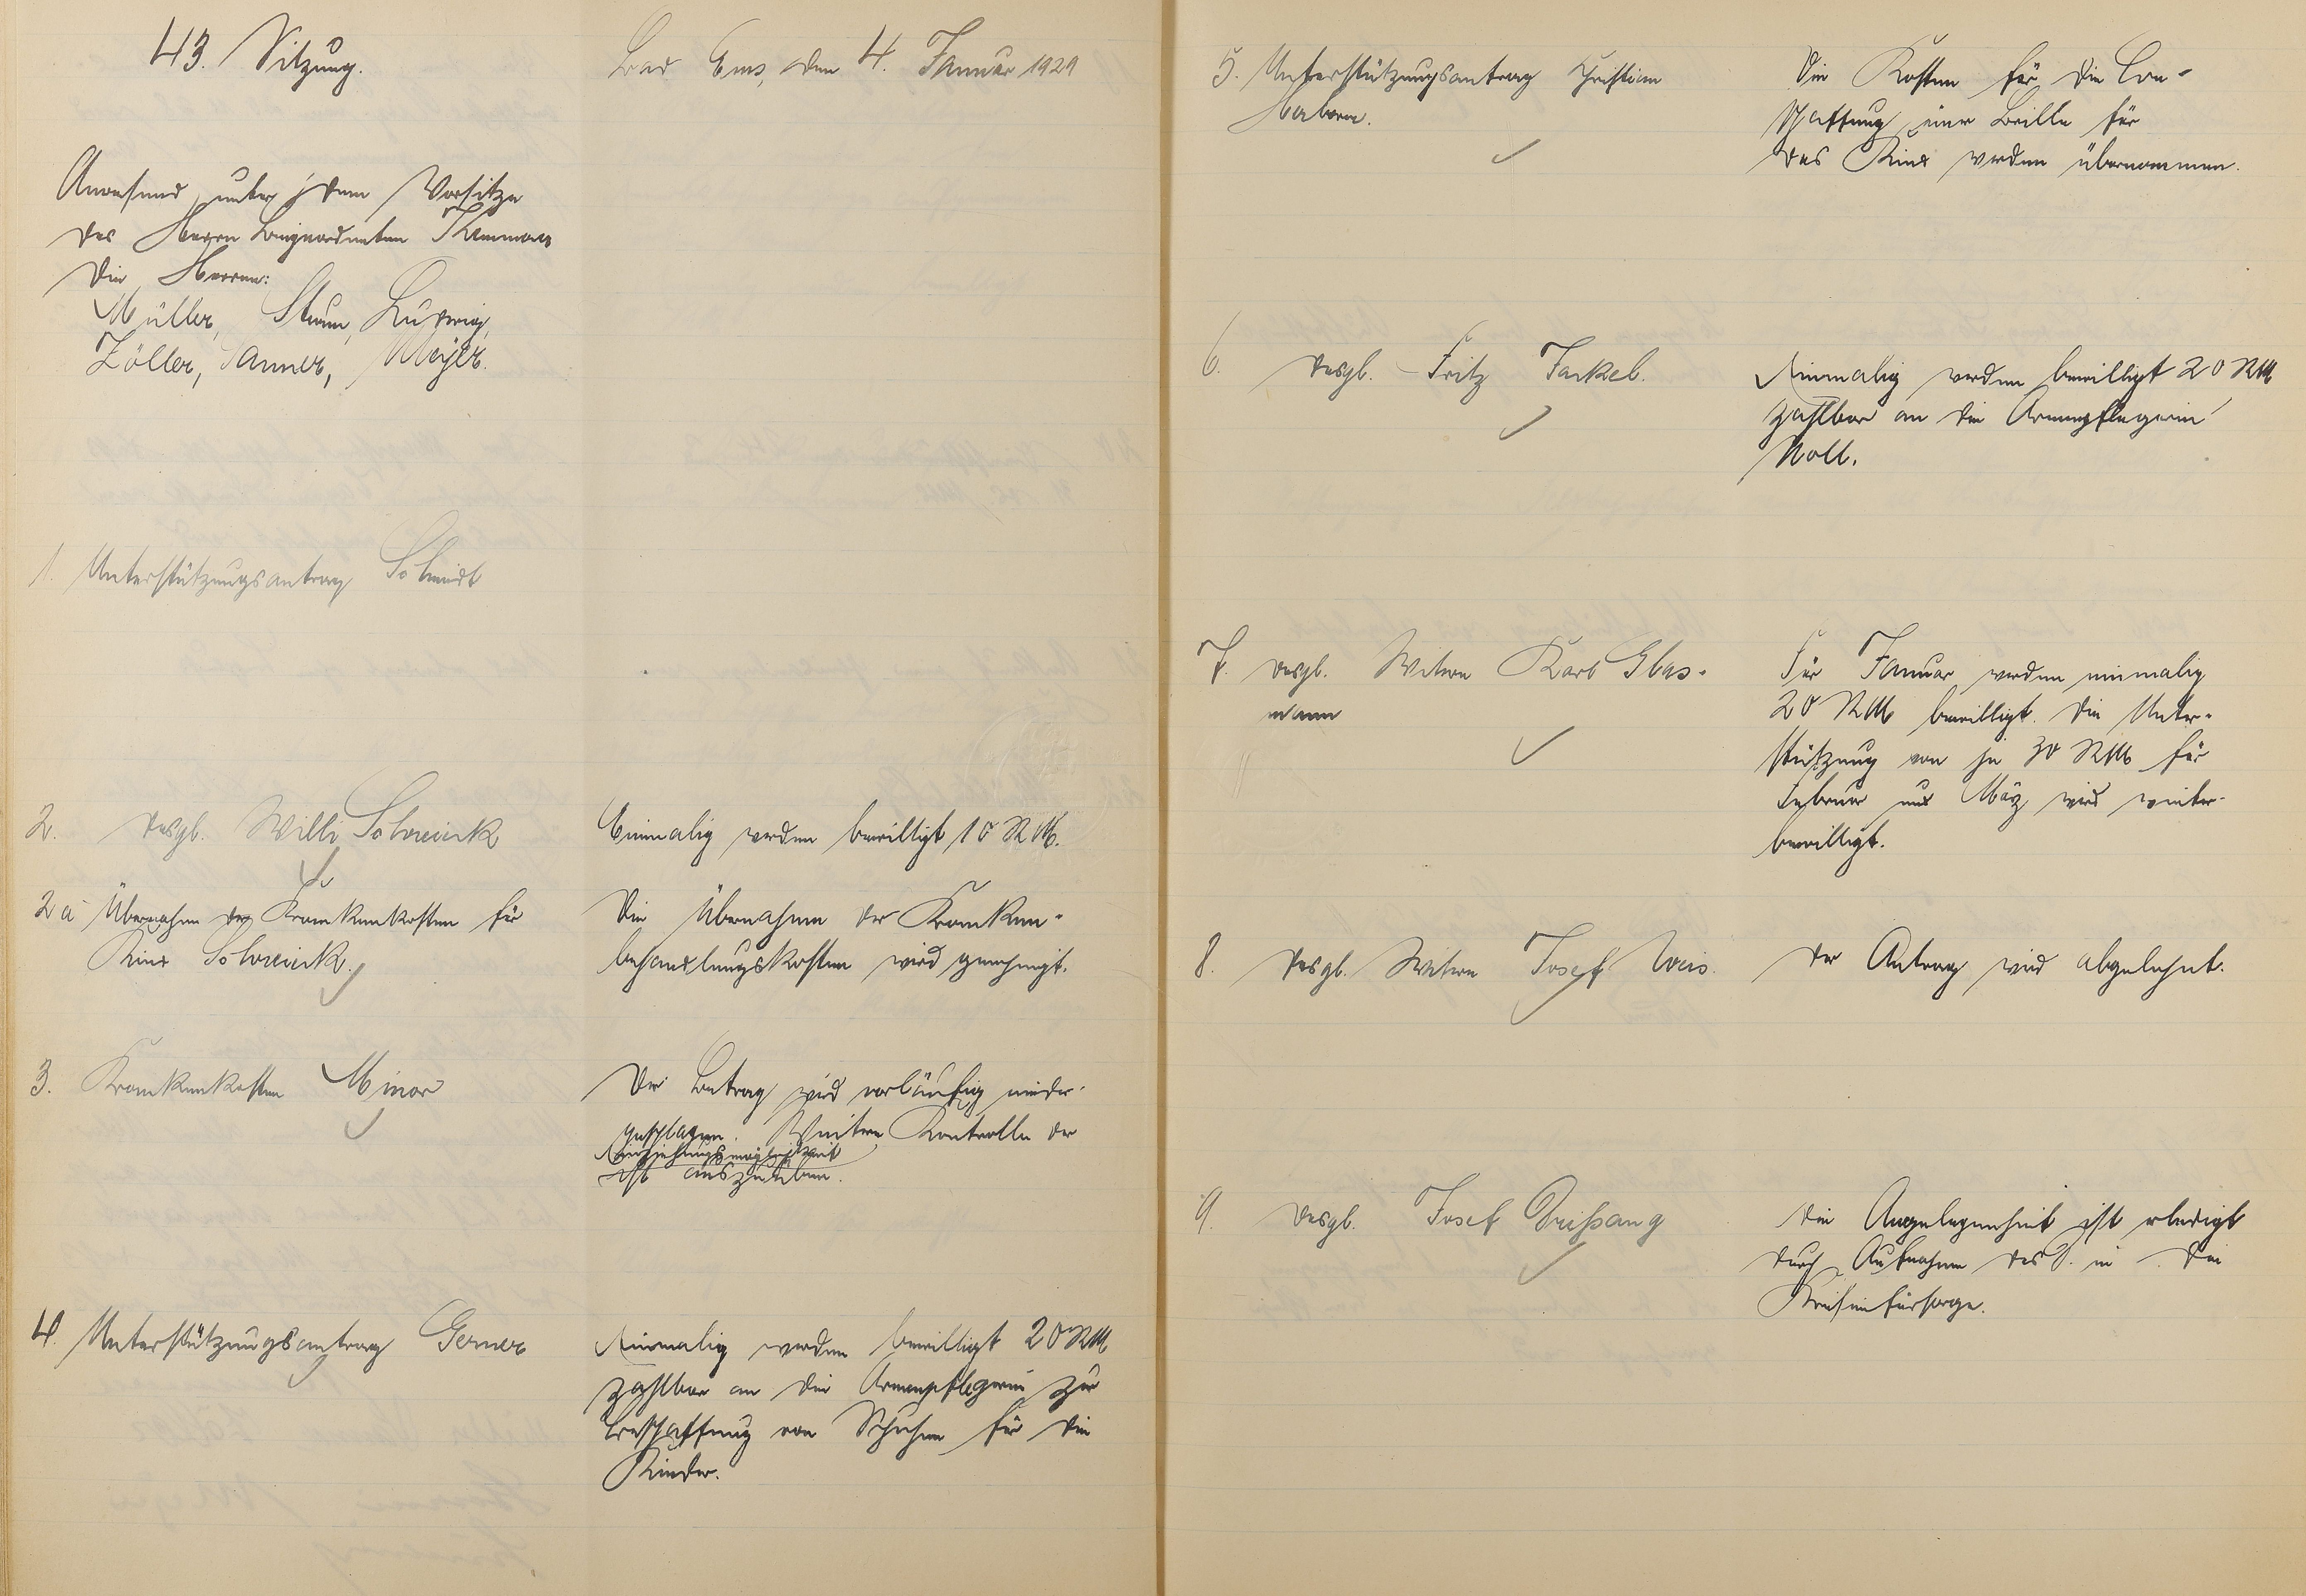 43. Sitzung.
Bad Ems, den 4. Januar 1929
Anwesend unter dem Vorsitze
des Herrn Beigeordneten
die Herren:
Müller, Sturm, Ludwig,
Zöller, Sanner, Meyer.
1. Unterstützungsantrag Schmidt
2. desgl. Willi Schweick
Einmalig werden bewilligt 10 RM.
2a Übernahme der Krankenkosten für
Kind Schweick.
Die Übernahme der Kranken-
behandlungskosten wird genehmigt.
3. Krankenkosten Minor
Der Betrag wird vorläufig nieder-
geschlagen. Weitere Kontrolle der
Einziehungsmöglichkeit
ist auszuüben.
4. Unterstützungsantrag Gerner
Einmalig werden bewilligt 20 RM
zahlbar an die Armenpflegerin zur
Beschaffung von Schuhen für die
Kinder.
5. Unterstützungsantrag Christian
Haborn.
Die Kosten für die Be-
schaffung einer Brille für
das Kind werden übernommen.
6. desgl. Fritz Jackel.
Einmalig werden bewilligt 20 RM
zahlbar an die Armenpflegerin
Noll.
7. desgl. Witwe Karl Glas-
mann
Für Januar werden einmalig
20 RM bewilligt. Die Unter-
stützung von je 30 RM für
Februar und März wird weiter-
bewilligt.
8. desgl. Witwe Josef Weis.
Der Antrag wird abgelehnt.
9. desgl. Josef
Die Angelegenheit ist erledigt
durch Aufnahme des D. in die
Krisenfürsorge.